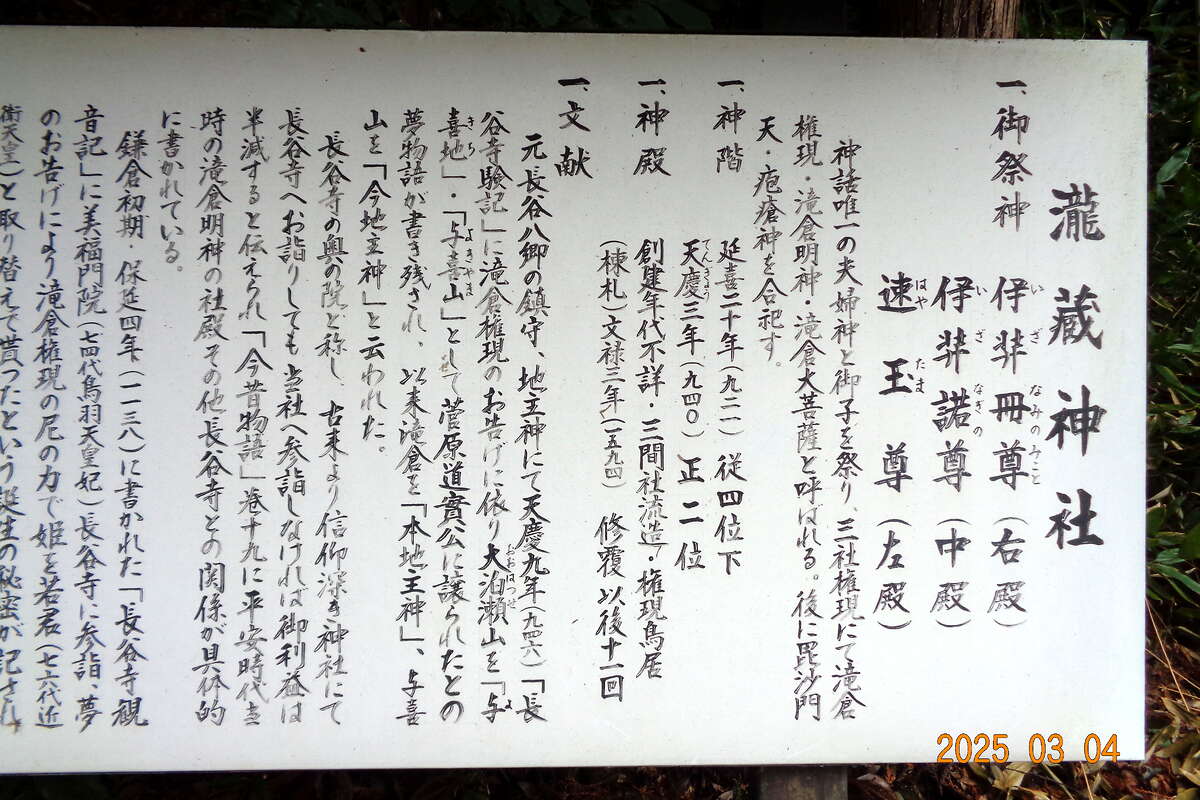 瀧蔵神社
一、御祭神　伊弉冊尊（右殿）
伊弉諾尊（中殿）
速玉尊（左殿）
神話唯一の夫婦神と御子を祭り、三社権現にて滝倉
権現・滝倉明神・滝倉大菩薩と呼ばれる。後に毘沙門
天・疱瘡神を合祀す。
一、神階　延喜二十年（九二一）従四位下
天慶三年（九四〇）正二位
一、神殿　創建年代不詳・三間社流造・権現鳥居
（棟札）文禄三年（一五九四）修覆以後十一回
一、文献
元長谷八郷の鎮守、地主神にて天慶九年（九四六）「長
谷寺験記」に滝倉権現のお告げに依り大泊瀬山を「与
喜地」・「与喜山」として菅原道實公に譲られたとの
夢物語が書き残され、以来滝倉を「本地主神」、与喜
山を「今地主神」と云われた。
長谷寺の奥の院と称し、古来より信仰深き神社にて
長谷寺へお詣りしても当社へ参詣しなければ御利益は
半減すると伝えられ「今昔物語」巻十九に平安時代当
時の滝倉明神の社殿その他長谷寺との関係が具体的
に書かれている。
鎌倉初期・保延四年（一一三八）に書かれた「長谷寺観
音記」に美福門院（七四代鳥羽天皇妃）長谷寺に参詣、夢
のお告げにより滝倉権現の尼の力で姫を若君（七六代近
衛天皇）と取り替えて貰ったという誕生の秘密が記され
2025 03 04